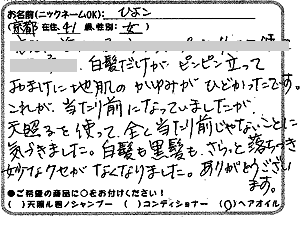 お名前(ニックネームOK): ひよこ
(京都 在住、41 歳、性別: 女 )
白髪だけが ピンピン立って
おまけに地肌のかゆみが ひどかったです。
これが、当たり前になっていましたが
天照るを使って、全く当たり前じゃないことに
気づきました。白髪も黒髪も、さらっと落ちつき
妙なクセがなくなりました。ありがとうござい
ます。
●ご希望の商品に○をお付けください!
( )天照る君シャンプー ( )コンディショナー (○)ヘアオイル